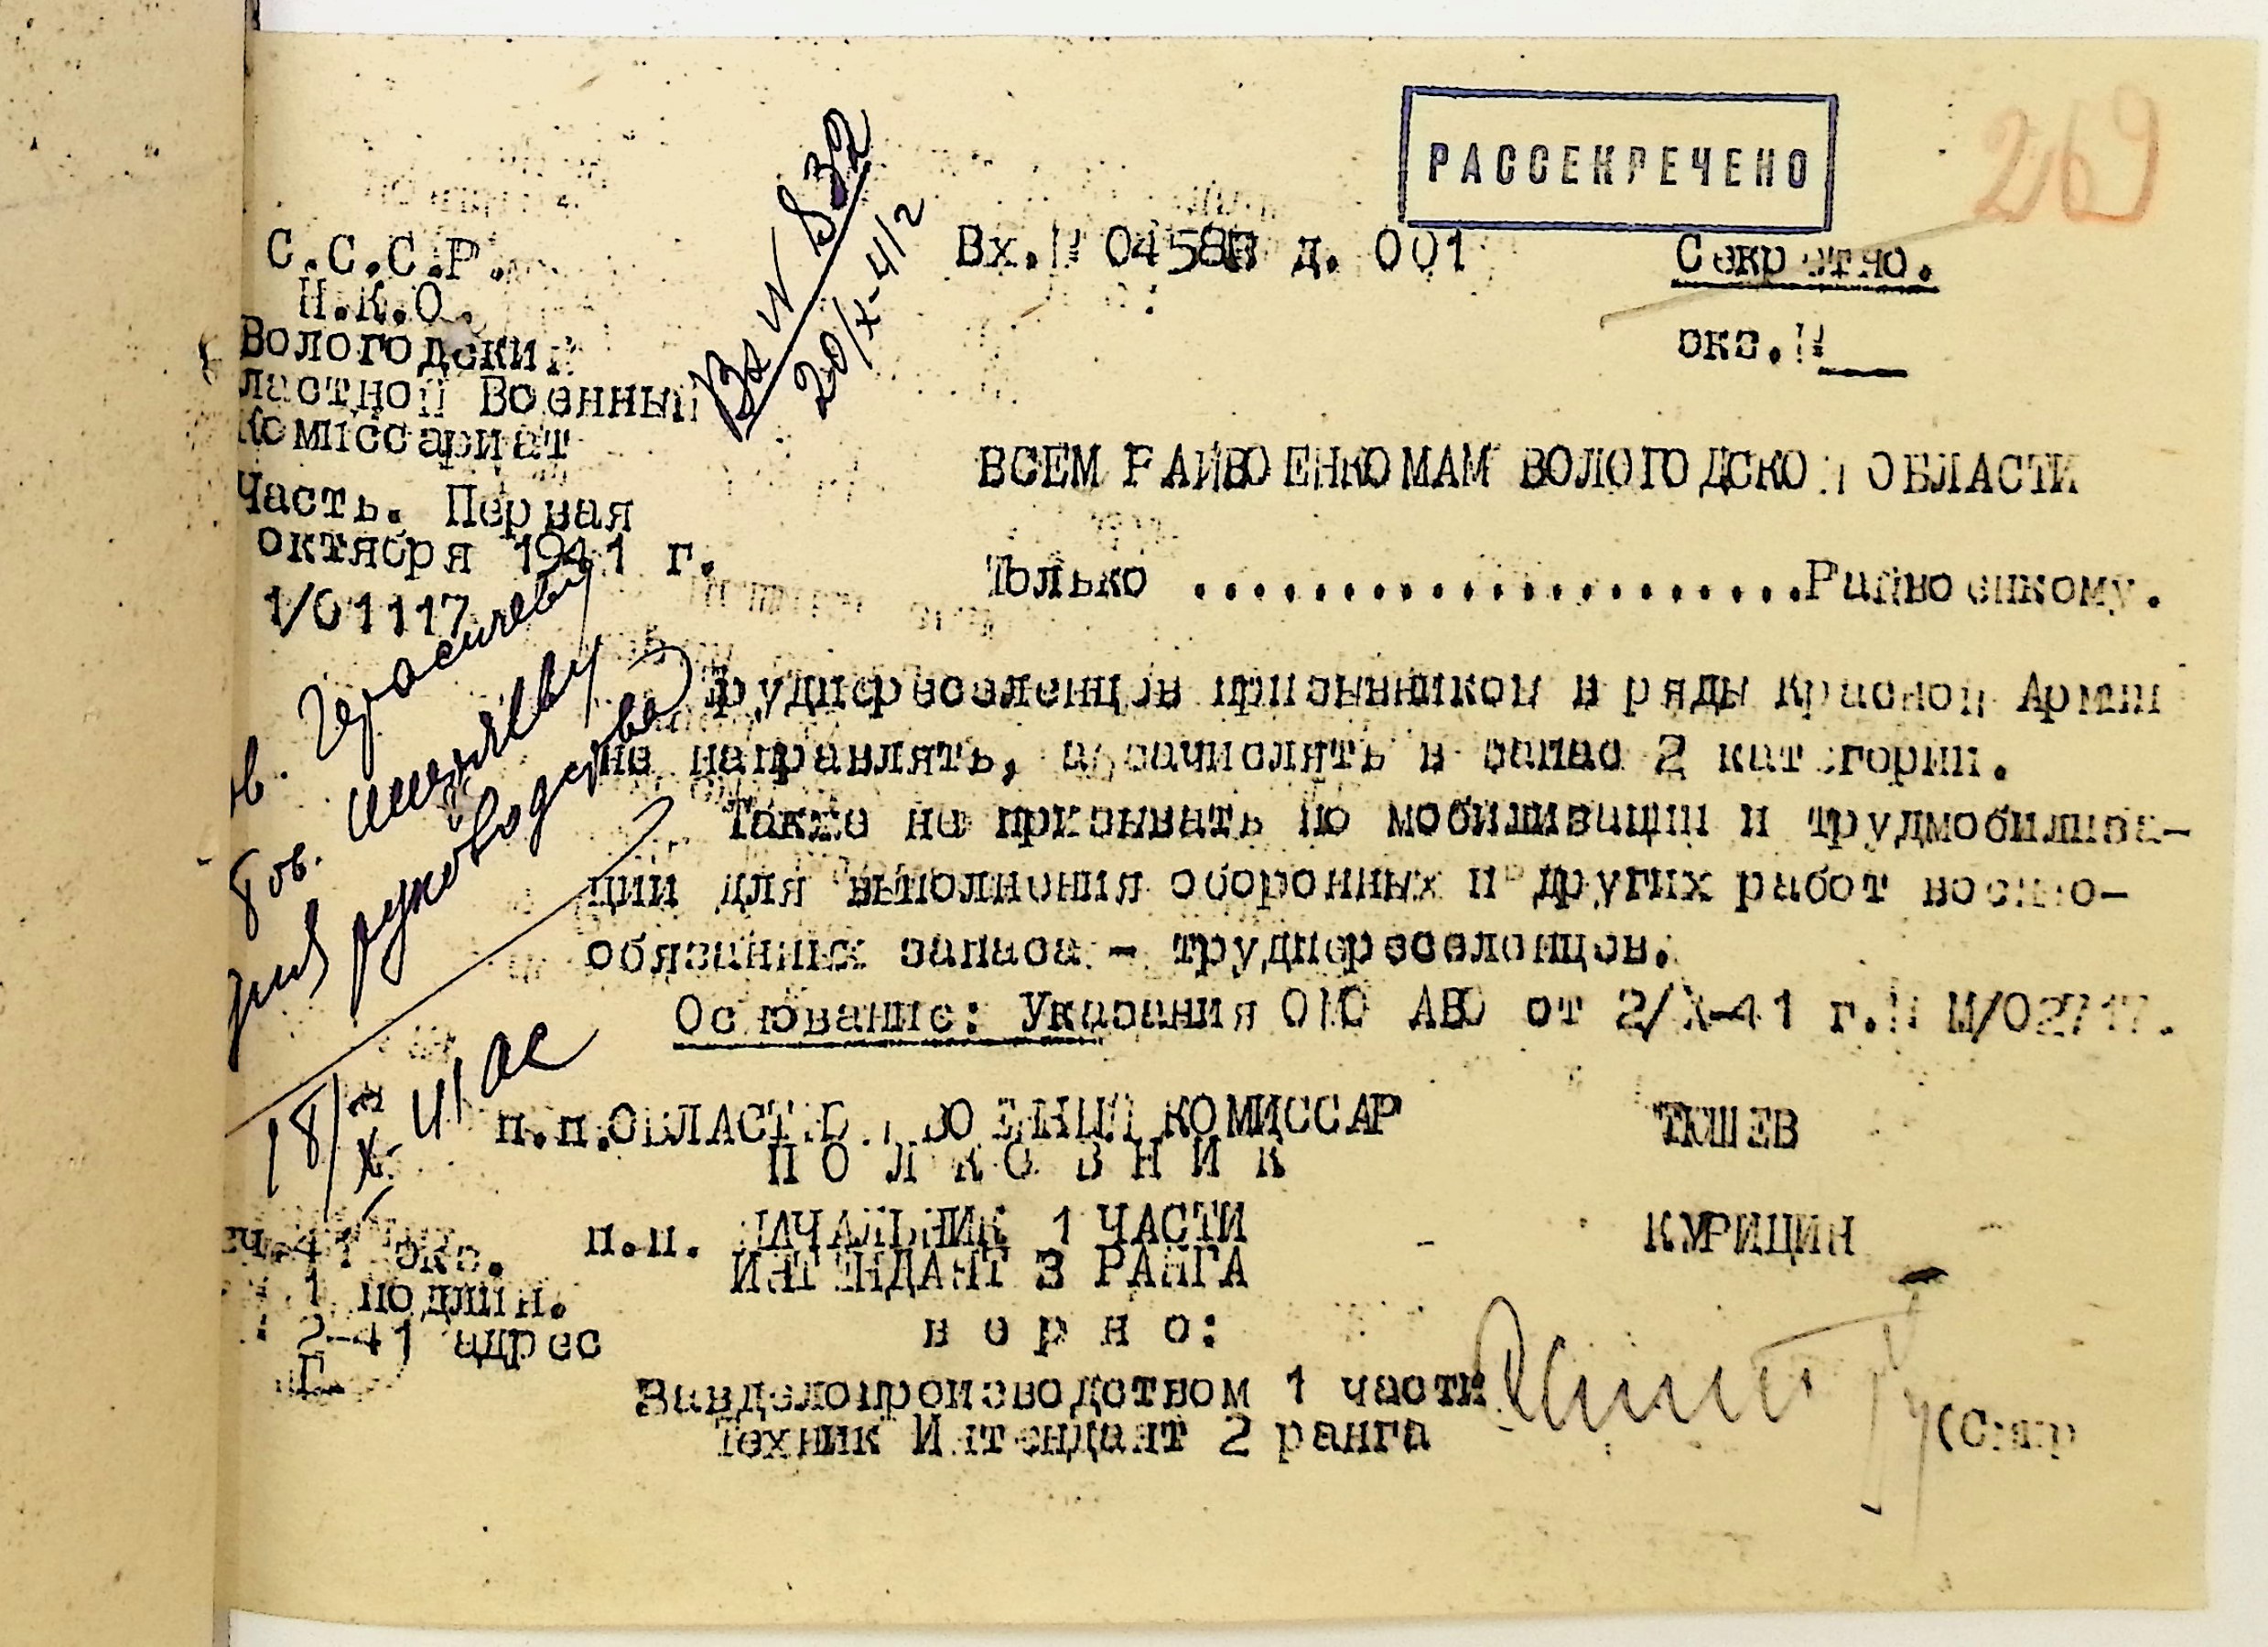 РАССЕКРЕЧЕНО
269
С.С.С.Р.
Н.К.О.
Вологодский
ластной Военный
Комиссариат
Часть. Первая
октября 1941 г.
1/01117
Вх № 832
20/X-41 г
Вх.№ д. 001
Секретно.
экз.№
ВСЕМ РАЙВОЕНКОМАМ ВОЛОГОДСКОЙ ОБЛАСТИ
Только ......................Райвоенкому.
Трудпереселенцев призывников в ряды Красной Армии
не направлять, а зачислять в запас 2 категории.
Также не призывать по мобилизации и трудмобилиза-
ции для выполнения оборонных и других работ военно-
обязанных запаса - трудпереселенцев.
Основание: Указания ОМО АВО от 2/X-41 г.№ М/02717.
в. Герасичеву
Тов.
руководства
18/X 41
п.п.ОБЛАСТНОЙ ВОЕННЫЙ КОМИССАР ТЮШЕВ
ПОЛКОВНИК
п.п. НАЧАЛЬНИК 1 ЧАСТИ - КУРИЦИН
ИНТЕНДАНТ 3 РАНГА
еч.41 экз.
1 подлин.
2-41 адрес
верно:
Завделопроизводством 1 части
Техник Интендант 2 ранга